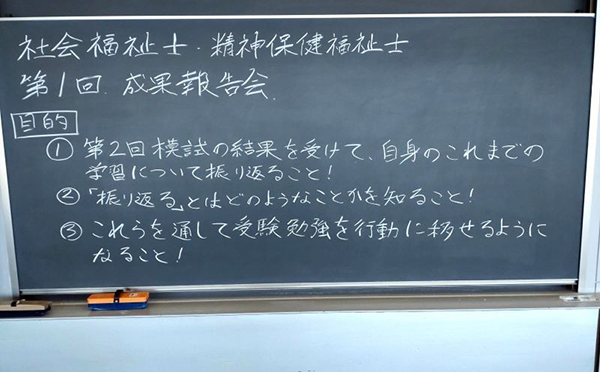 社会福祉士・精神保健福祉士
第1回 成果報告会
目的
① 第2回模試の結果を受けて、自身のこれまでの
学習について振り返ること!
② 「振り返る」とはどのようなことかを知ること!
③ これらを通して受験勉強を行動に移せるように
なること!